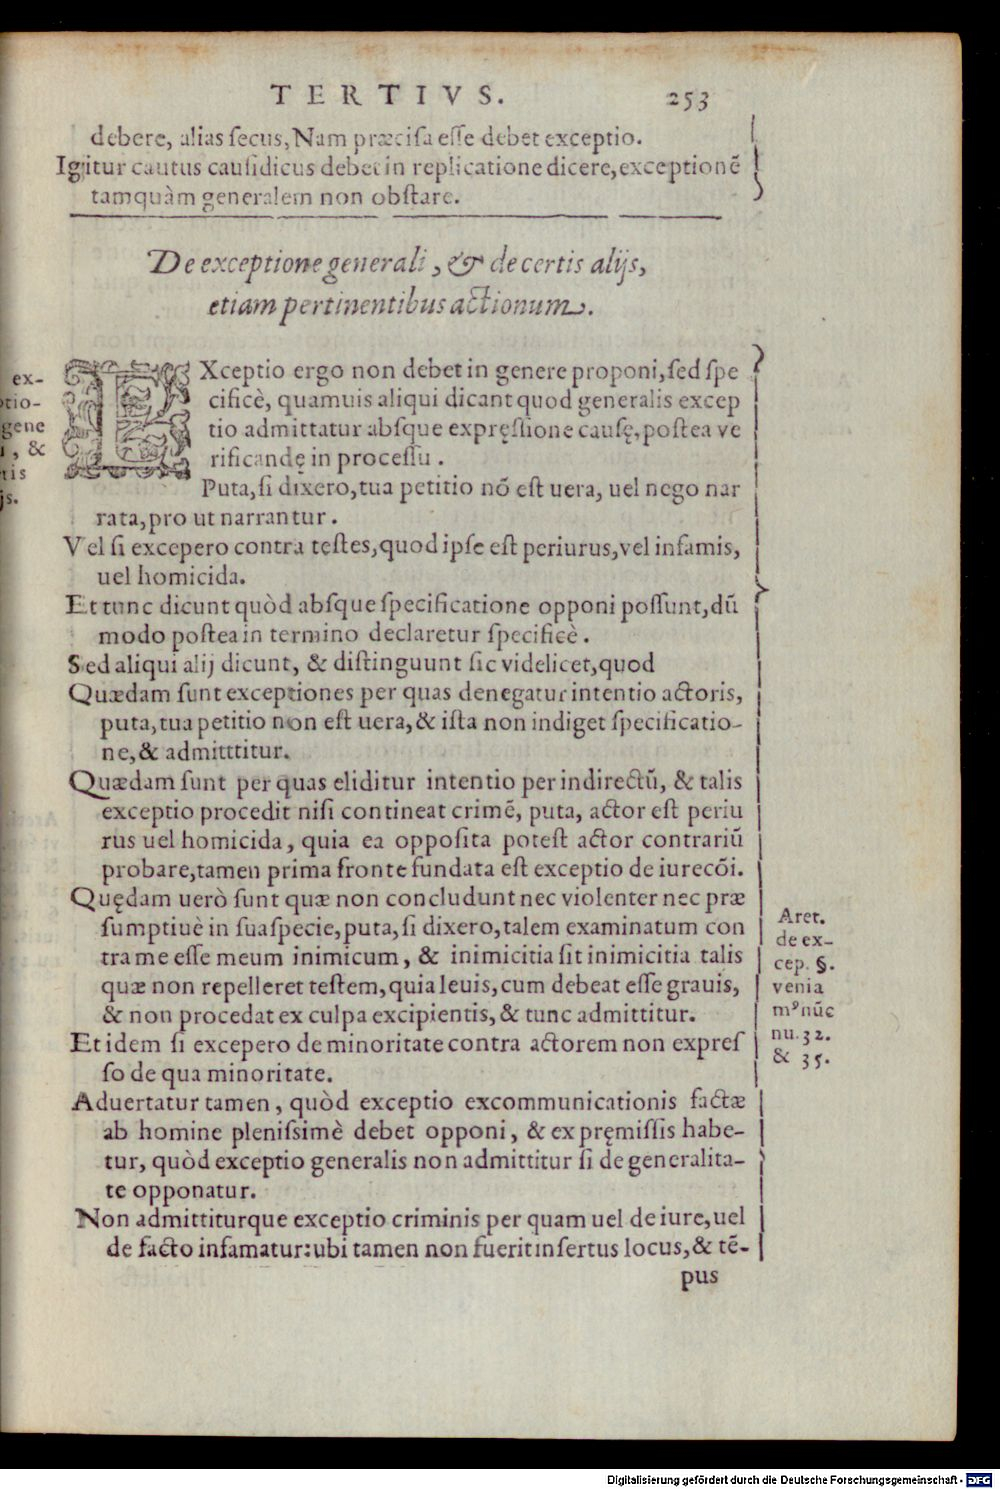 TERTIVS. 253
debere, alias secus, Nam præcisa esse debet exceptio.
Igitur cautus causidicus debet in replicatione dicere, exceptionẽ
tamquàm generalem non obstare.
De exceptione generali, & de certis alijs,
etiam pertinentibus actionum.
ex-
ptio-
gene
, &
tis
js.
EXceptio ergo non debet in genere proponi, sed spe
cificè, quamuis aliqui dicant quod generalis excep
tio admittatur absque expręssione causę, postea ve
rificandę in processu.
Puta, si dixero, tua petitio nõ est uera, uel nego nar
rata, pro ut narrantur.
Vel si excepero contra testes, quod ipse est periurus, vel infamis,
uel homicida.
Et tunc dicunt quòd absque specificatione opponi possunt, dũ
modo postea in termino declaretur specificè.
Sed aliqui alij dicunt, & distinguunt sic videlicet, quod
Quædam sunt exceptiones per quas denegatur intentio actoris,
puta, tua petitio non est uera, & ista non indiget specificatio-
ne, & admitttitur.
Quædam sunt per quas eliditur intentio per indirectũ, & talis
exceptio procedit nisi contineat crimẽ, puta, actor est periu
rus uel homicida, quia ea opposita potest actor contrariũ
probare, tamen prima fronte fundata est exceptio de iure cõi.
Quędam uerò sunt quæ non concludunt nec violenter nec præ
sumptiuè in sua specie, puta, si dixero, talem examinatum con
tra me esse meum inimicum, & inimicitia sit inimicitia talis
quæ non repelleret testem, quia leuis, cum debeat esse grauis,
& non procedat ex culpa excipientis, & tunc admittitur.
Et idem si excepero de minoritate contra actorem non expres
so de qua minoritate.
Aduertatur tamen, quòd exceptio excommunicationis factæ
ab homine plenissimè debet opponi, & ex pręmissis habe-
tur, quòd exceptio generalis non admittitur si de generalita-
te opponatur.
Non admittiturque exceptio criminis per quam uel de iure, uel
de facto infamatur: ubi tamen non fuerit insertus locus, & tẽ-
pus
Aret.
de ex-
cep. §.
venia
mꝰ nũc
nu. 32.
& 35.
Digitalisierung gefördert durch die Deutsche Forschungsgemeinschaft - DFG